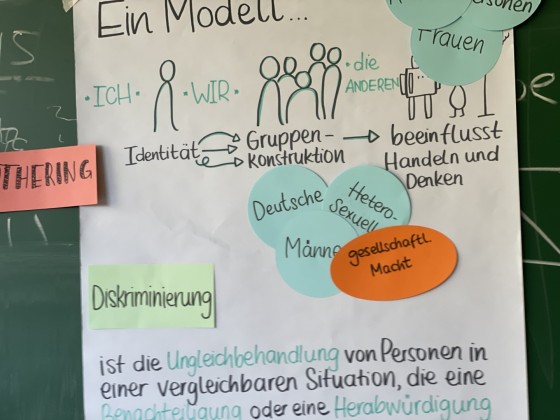 Ein Modell...
Frauen
• ICH •
• WIR •
• die
ANDEREN
Identität
Gruppen-
konstruktion
beeinflusst
Handeln und
Denken
THERING
Deutsche
Hetero-
sexuell
Männe
gesellschaftl.
Macht
Diskriminierung
ist die Ungleichbehandlung von Personen in
einer vergleichbaren Situation, die eine
Benachteiligung oder eine Herabwürdigung